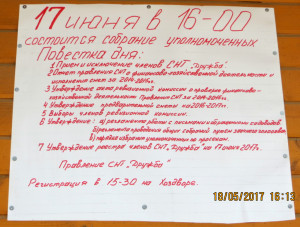 17 июня в 16-00
состоится собрание уполномоченных
Повестка дня:
1 Прием и исключение членов СНТ "Дружба"
2 Отчет правления СНТ о финансово-хозяйственной деятельности и
исполнении смет за 2014-2016г.
3 Утверждение акта ревизионной комиссии о проверке финансово-
хозяйственной деятельности Правления СНТ за 2014-2016г.
4 Утверждение приходно-расходной сметы на 2016-2017г.
5 Выборы членов ревизионной комиссии.
6 Утверждение: а)
7 Утверждение реестра членов СНТ "Дружба" на 17 июня 2017г.
Правление СНТ "Дружба"
Регистрация в 15-30 на Хоздворе.
18/05/2017 16:13